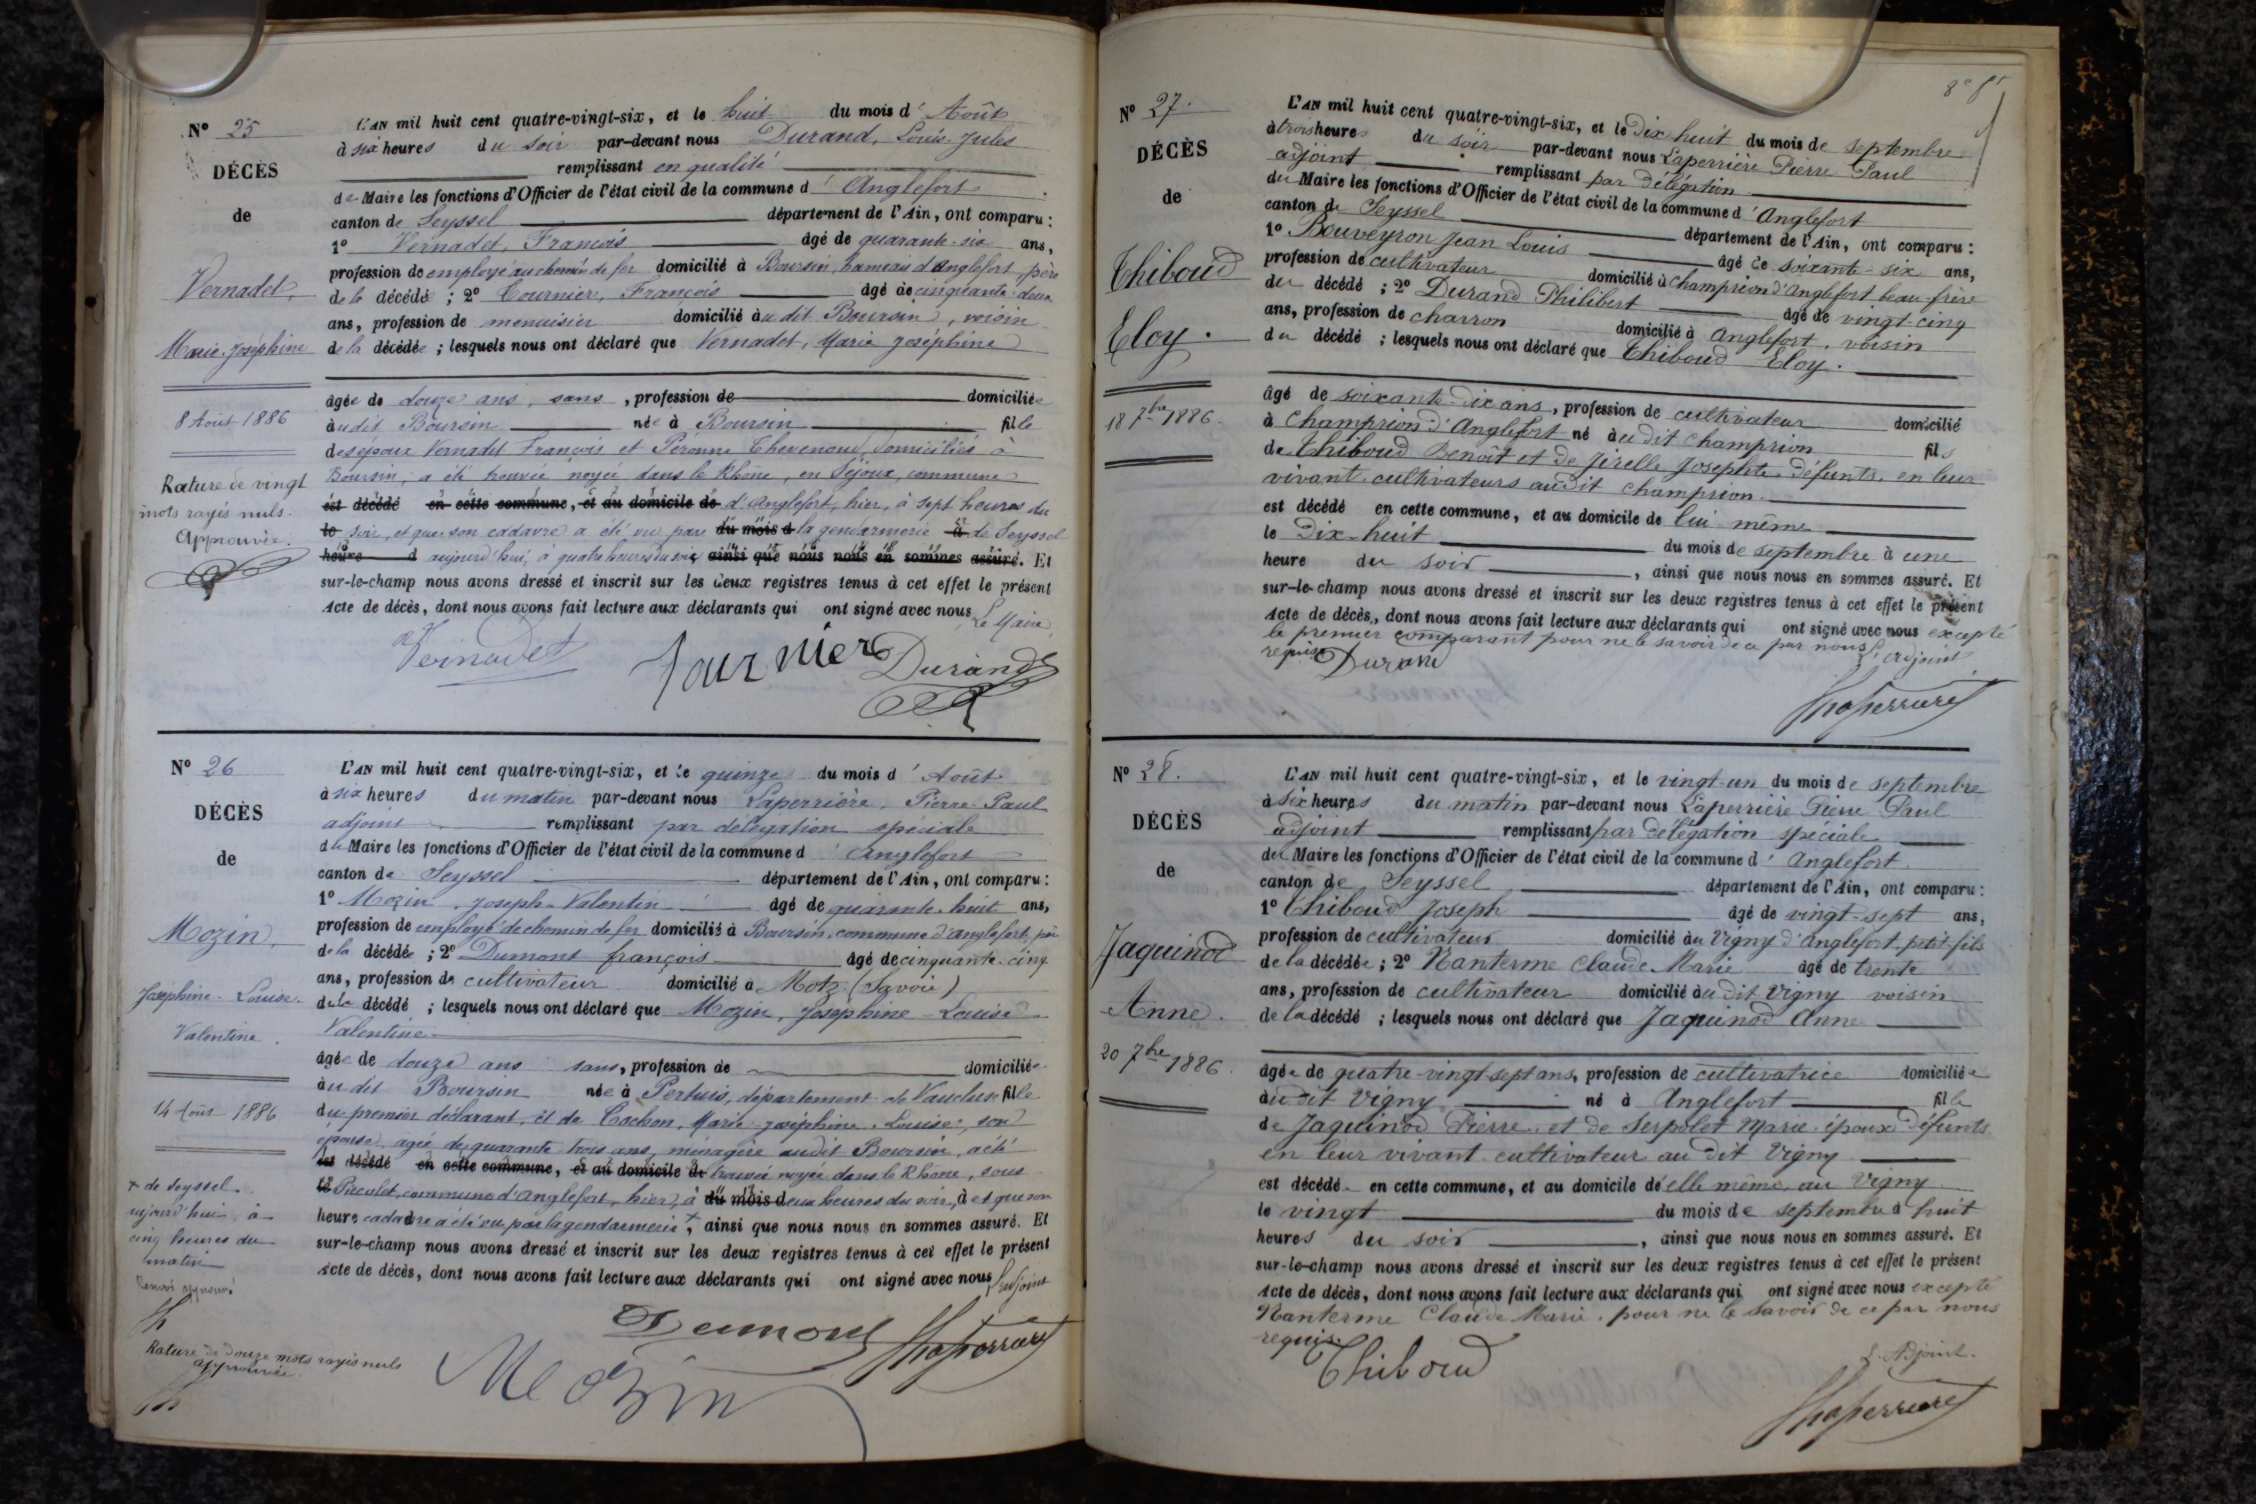 Nº 25
DÉCÈS
de
Vernadet,
Marie Joséphine
8 Août 1886
Rature de vingt
mots rayés nuls.
Approuvée.
L'AN mil huit cent quatre-vingt-six, et le huit du mois d'Août
à six heures du soir par-devant nous Durand, Louis Jules
remplissant en qualité
de Maire les fonctions d'Officier de l'état civil de la commune d'Anglefort
canton de Seyssel département de l'Ain, ont comparu :
1º Vernadet, François âgé de quarante-six ans,
profession de employé au chemin de fer domicilié à Boursin, hameau d'Anglefort, père
de la décédé ; 2º Tournier, François âgé de cinquante-deux
ans, profession de menuisier domicilié audit Boursin, voisin
de la décédée ; lesquels nous ont déclaré que Vernadet, Marie Joséphine
âgée de douze ans, sans, profession de domiciliée
audit Boursin née à Boursin fille
des époux Vernadet François et Péronne Thevenoud, domiciliés à
Boursin, a été trouvée noyée dans le Rhône, en Séjoux, commune
est décédé en cette commune, et au domicile de d'Anglefort, hier, à sept heures du
le soir, et que son cadavre a été vu par du mois d la gendarmerie à de Seyssel
heure d aujourd'hui, à quatre heures du soir, ainsi que nous nous en sommes assuré. Et
sur-le-champ nous avons dressé et inscrit sur les deux registres tenus à cet effet le présent
Acte de décès, dont nous avons fait lecture aux déclarants qui ont signé avec nous
Le Maire,
Vernadet
Fournier
Durand
Nº 26
DÉCÈS
de
Mozin,
Joséphine-Louise-
Valentine.
14 Août 1886
+ de Seyssel
aujourd'hui, à
cinq heures du
matin
Renvoi approuvé
Rature de douze mots rayés nuls
approuvée.
L'AN mil huit cent quatre-vingt-six, et le quinze du mois d'Août
à six heures du matin par-devant nous Laperrière, Pierre Paul
adjoint remplissant par délégation spéciale
du Maire les fonctions d'Officier de l'état civil de la commune d'Anglefort
canton de Seyssel département de l'Ain, ont comparu :
1º Mozin, Joseph-Valentin âgé de quarante-huit ans,
profession de employé de chemin de fer domicilié à Boursin, commune d'Anglefort, père
de la décédée ; 2º Dumont françois âgé de cinquante-cinq
ans, profession de cultivateur domicilié à Motz (Savoie)
de la décédé ; lesquels nous ont déclaré que Mozin, Joséphine-Louise
Valentine
âgée de douze ans sans, profession de domiciliée
audit Boursin née à Pertuis, département de Vaucluse fille
du premier déclarant et de Cochon, Marie Joséphine Louise, son
épouse, agée de quarante trois ans, ménagère audit Boursin, a été
est décédé en cette commune, et au domicile de trouvée noyée dans le Rhône, sous
le Picolet, commune d'Anglefort, hier, à du mois deux heures du soir, à et que son
heure cadavre a été vu par la gendarmerie +, ainsi que nous nous en sommes assuré. Et
sur-le-champ nous avons dressé et inscrit sur les deux registres tenus à cet effet le présent
Acte de décès, dont nous avons fait lecture aux déclarants qui ont signé avec nous
L'adjoint
Dumont
Laperrière
Mozin
8e ft
Nº 27.
DÉCÈS
de
Thiboud
Eloy.
18 7bre 1886.
L'AN mil huit cent quatre-vingt-six, et le Dix huit du mois de septembre
à trois heures du soir par-devant nous Laperrière Pierre Paul
adjoint remplissant par délégation
du Maire les fonctions d'Officier de l'état civil de la commune d'Anglefort
canton de Seyssel département de l'Ain, ont comparu :
1º Bouveyron Jean Louis âgé de soixante-six ans,
profession de cultivateur domicilié à Champrion d'Anglefort, beau-frère
du décédé ; 2º Durand Philibert âgé de vingt-cinq
ans, profession de charron domicilié à Anglefort, voisin
du décédé ; lesquels nous ont déclaré que Thiboud Eloy.
âgé de soixante-dix ans, profession de cultivateur domicilié
à Champrion d'Anglefort né audit Champrion fils
de Thiboud Benoît et de Jirelle Josephte, défunts, en leur
vivant cultivateurs audit Champrion.
est décédé en cette commune, et au domicile de lui-même
le Dix-huit du mois de septembre à une
heure du soir, ainsi que nous nous en sommes assuré. Et
sur-le-champ nous avons dressé et inscrit sur les deux registres tenus à cet effet le présent
Acte de décès, dont nous avons fait lecture aux déclarants qui ont signé avec nous excepté
le premier comparant pour ne le savoir de ce par nous
requis
L'adjoint
Durand
Laperrière
Nº 28.
DÉCÈS
de
Jaquinod
Anne.
20 7bre 1886.
L'AN mil huit cent quatre-vingt-six, et le vingt-un du mois de septembre
à six heures du matin par-devant nous Laperrière Pierre Paul
adjoint remplissant par délégation spéciale
du Maire les fonctions d'Officier de l'état civil de la commune d'Anglefort.
canton de Seyssel département de l'Ain, ont comparu :
1º Thiboud Joseph âgé de vingt-sept ans,
profession de cultivateur domicilié au Vigny d'Anglefort petit-fils
de la décédée ; 2º Nanterme Claude Marie âgé de trente
ans, profession de cultivateur domicilié audit Vigny voisin
de la décédé ; lesquels nous ont déclaré que Jaquinod Anne
âgée de quatre-vingt-sept ans, profession de cultivatrice domiciliée
audit Vigny né à Anglefort fille
de Jaquinod Pierre et de Serpolet Marie époux défunts
en leur vivant cultivateur audit Vigny
est décédé en cette commune, et au domicile de elle même au Vigny
le vingt du mois de septembre à huit
heures du soir, ainsi que nous nous en sommes assuré. Et
sur-le-champ nous avons dressé et inscrit sur les deux registres tenus à cet effet le présent
Acte de décès, dont nous avons fait lecture aux déclarants qui ont signé avec nous excepté
Nanterme Claude Marie, pour ne le savoir de ce par nous
requis.
L'Adjoint.
Thiboud
Laperrière